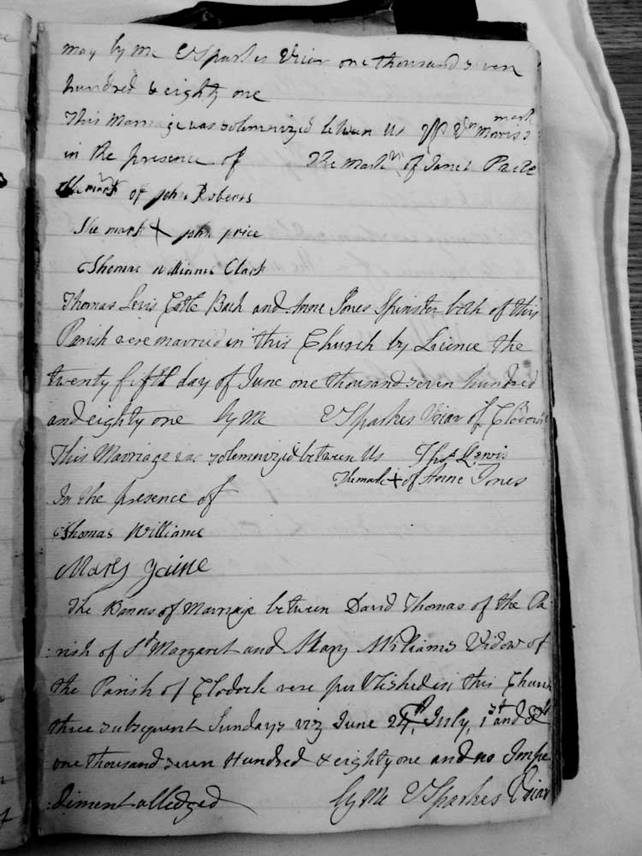 may by me V Sparkes Vicar one thousand seven
hundred & eighty one
This Marriage was solemnized between us Wm Morris's mark
in the presence of The mark of Janet
The mark of John Roberts
The mark X John price
Thomas williams Clark
Thomas Lewis Batch and Anne Jones Spinster both of this
Parish were married in this Church by Licence the
twenty fifth day of June one thousand seven hundred
and eighty one by Me V Sparkes Vicar of Clodock
This Marriage was solemnized between Us Thos Lewis
The mark + of Anne Jones
In the presence of
Thomas Williams
Mary
The Banns of Marriage between David Thomas of the Pa:
:rish of St Margaret and Mary Williams Widow of
the Parish of Clodock were published in this Church
three subsequent Sundays viz June 24th, July, 1st and 8th
one thousand seven Hundred & eighty one and no Impe
:diment alledged by Me V Sparkes Vicar